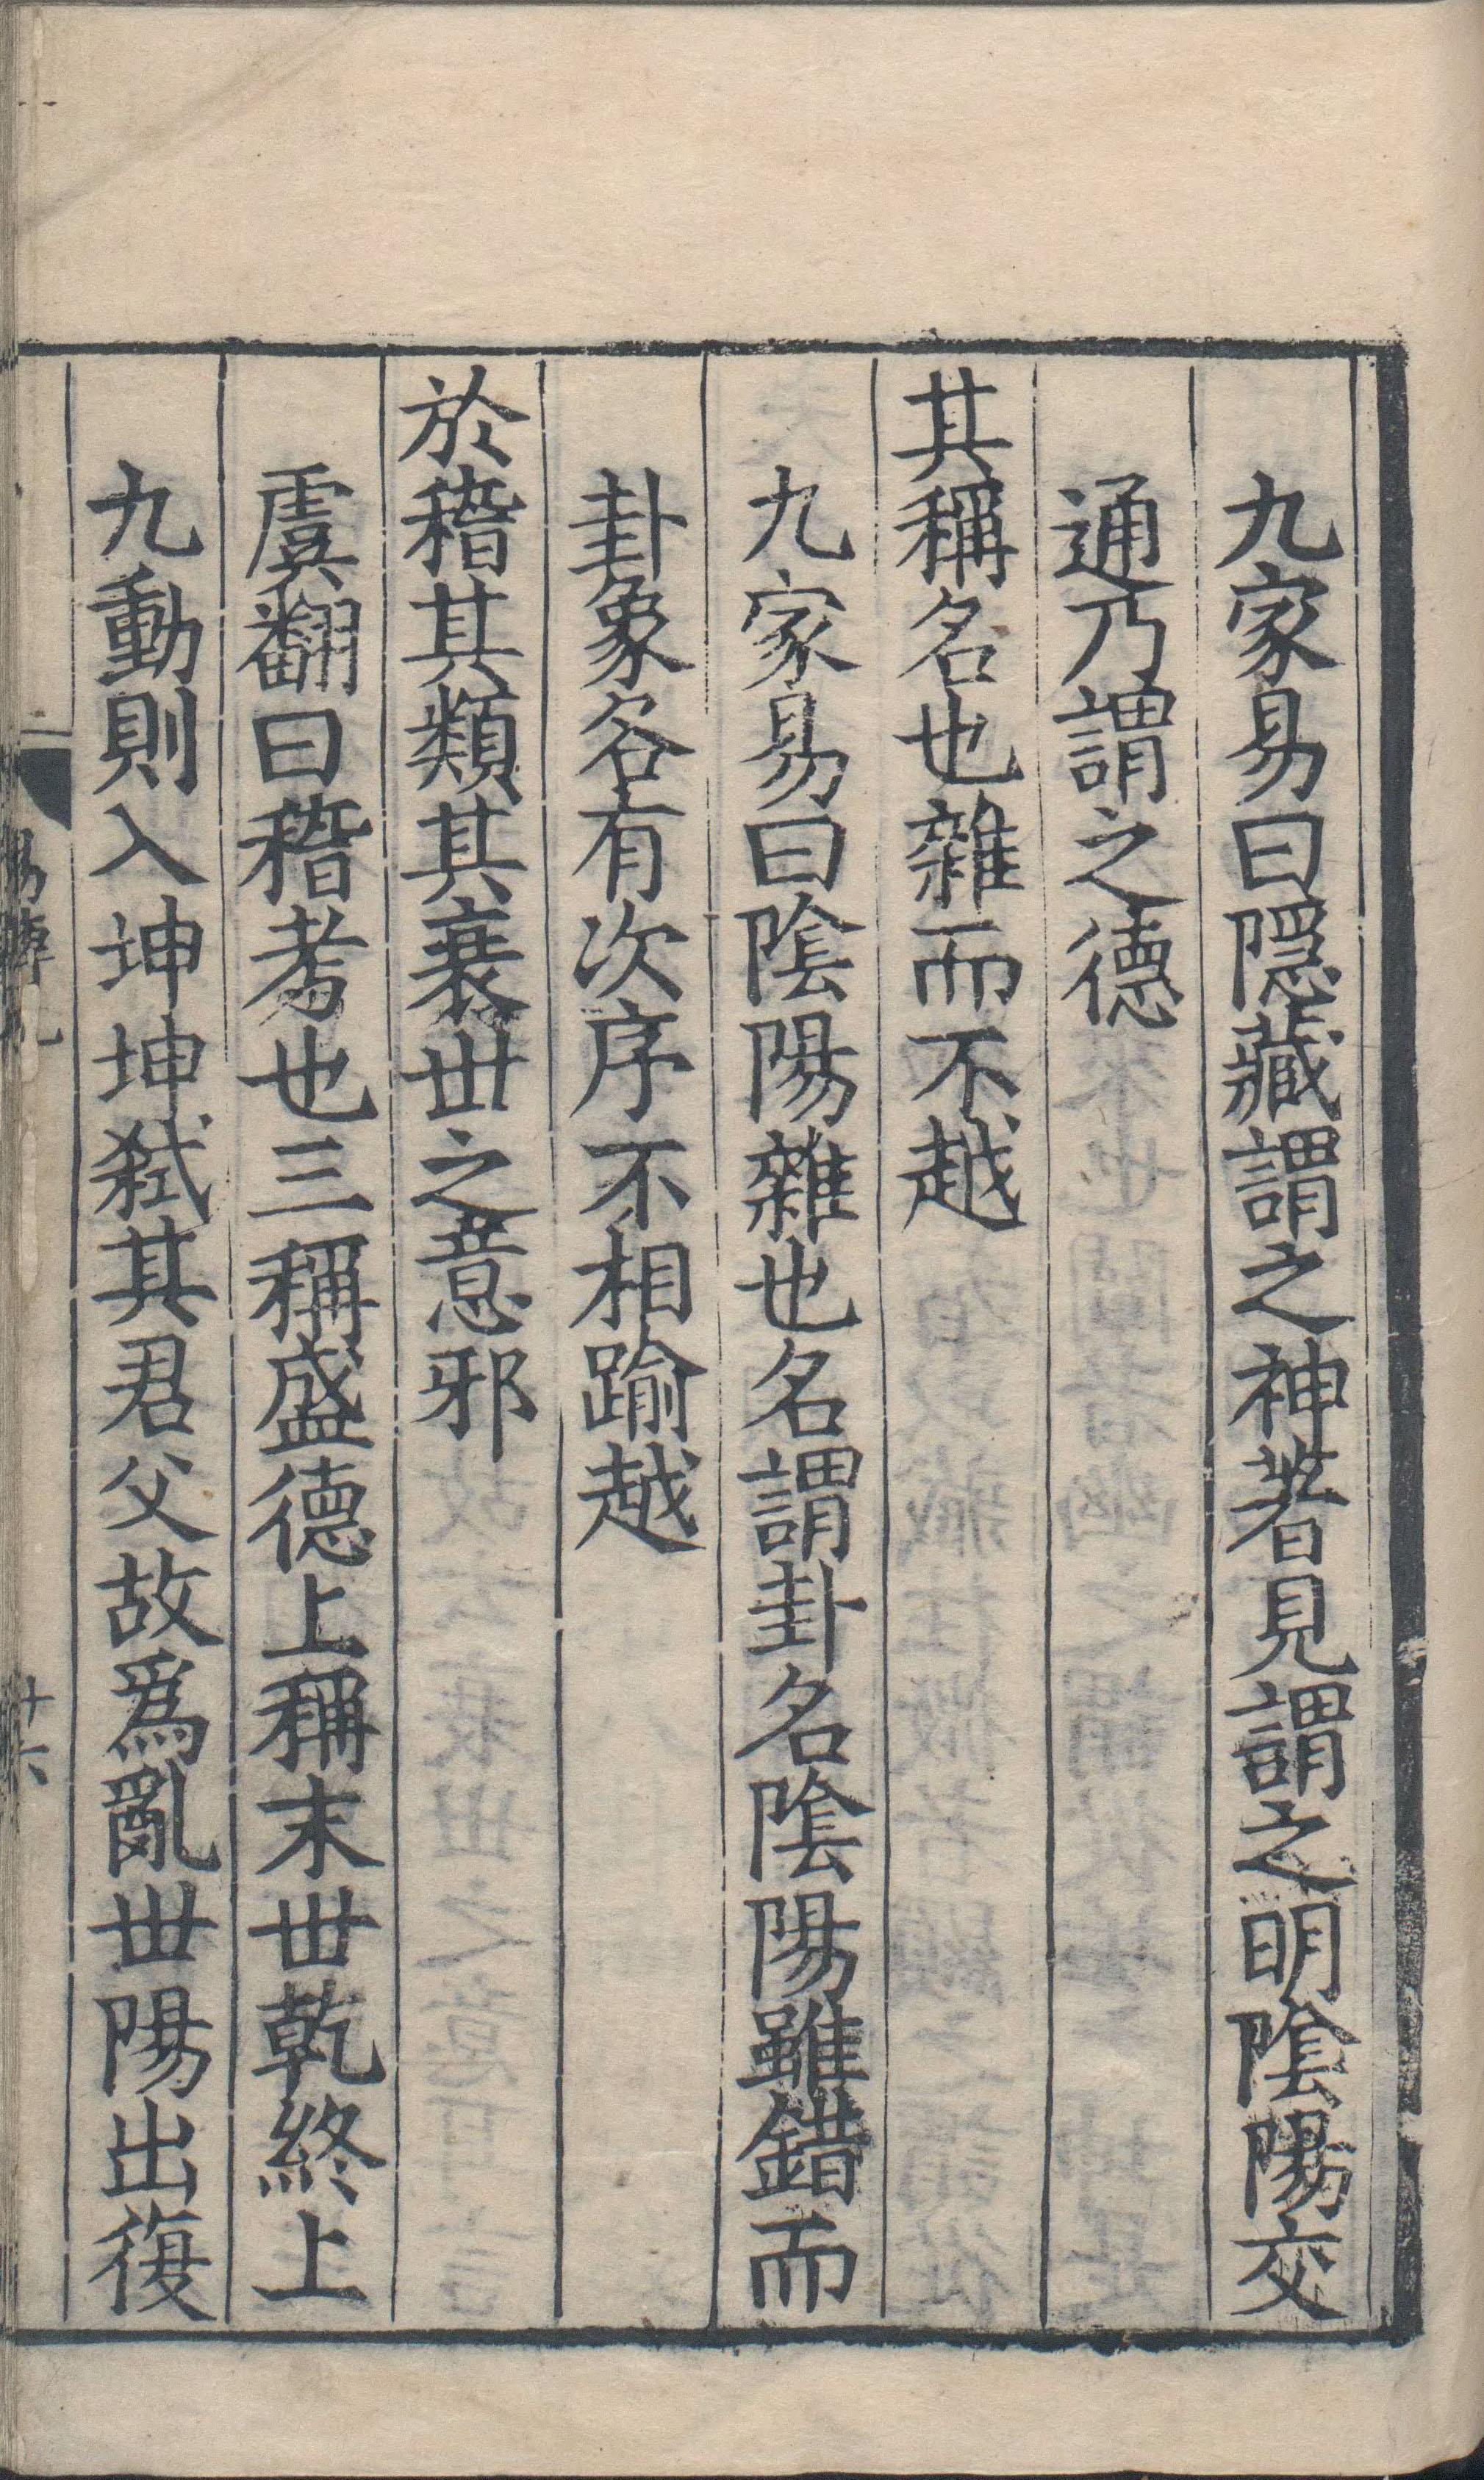 九家易曰隱藏謂之神著見謂之明陰陽交
通乃謂之德
其稱名也雜而不越
九家易曰陰陽雜也名謂卦名陰陽雖錯而
卦象各有次序不相踰越
於稽其類其衰世之意邪
虞翻曰稽考也三稱盛德上稱末世乾終上
九動則入坤坤弒其君父故爲亂世陽出復
易傳九
十六